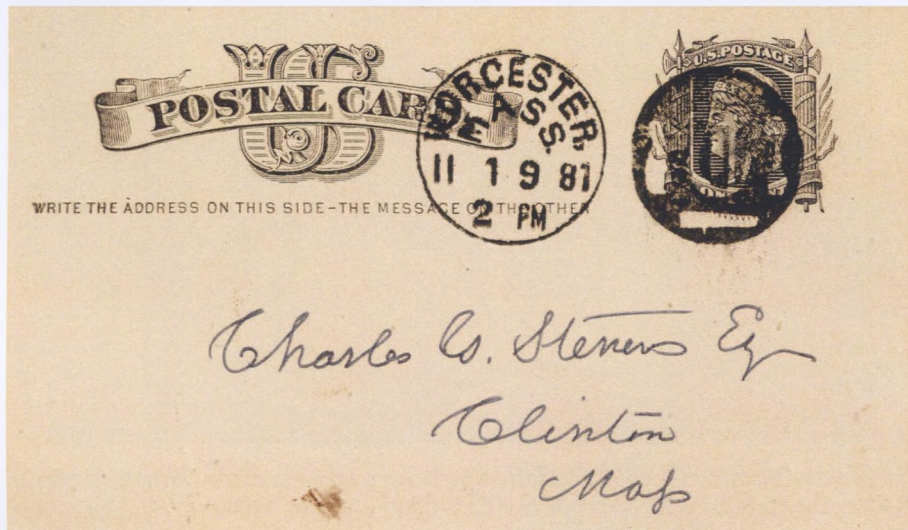 US
POSTAL CAR
WORCESTER.
MASS.
11 19 81
2 PM
U.S. POSTAGE
WRITE THE ADDRESS ON THIS SIDE-THE MESSAGE ON THE OTHER
Charles G. Stevens Esq
Clinton
Mass